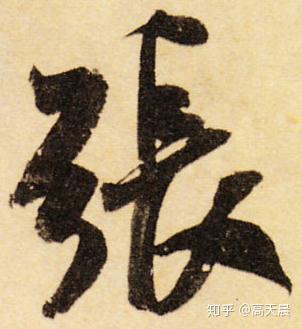 張
知乎 @高天晨